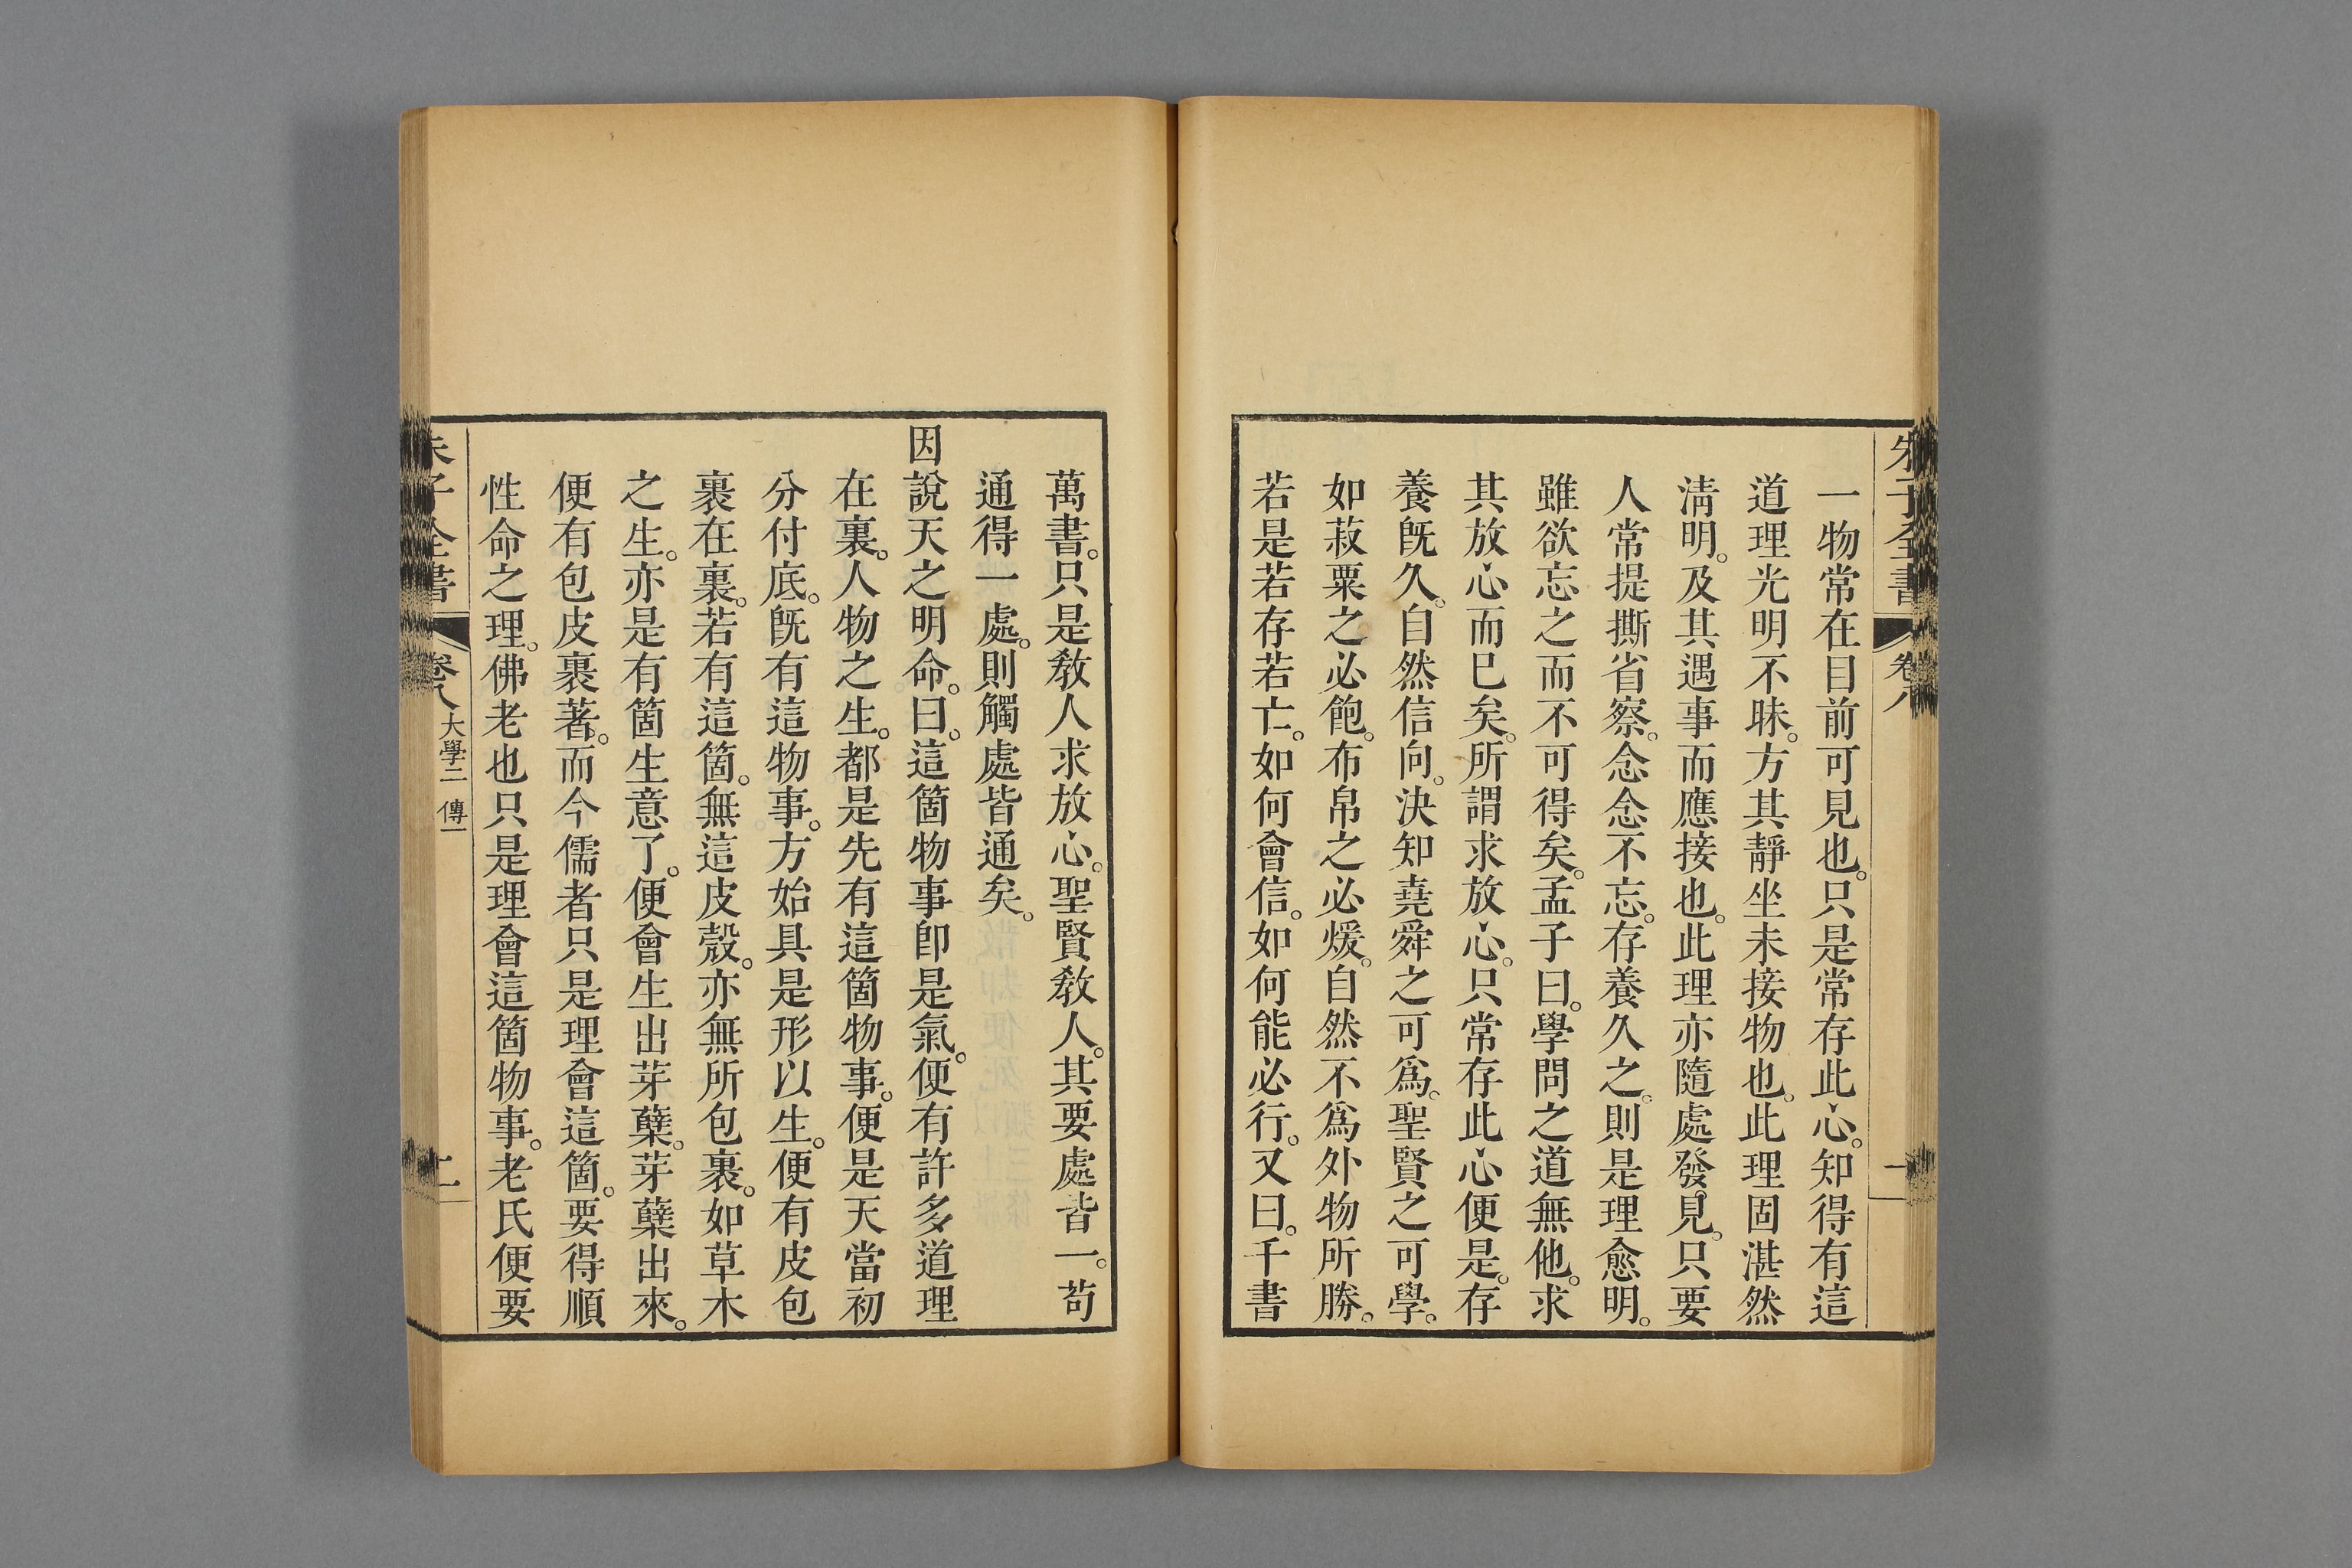 朱子全書 卷八 一
一物常在目前可見也。只是常存此心。知得有這
道理光明不昧。方其靜坐未接物也。此理固湛然
淸明。及其遇事而應接也。此理亦隨處發見。只要
人常提撕省察。念念不忘。存養久之。則是理愈明。
雖欲忘之而不可得矣。孟子曰。學問之道無他。求
其放心而已矣。所謂求放心。只常存此心便是。存
養旣久。自然信向。決知堯舜之可爲。聖賢之可學。
如菽粟之必飽。布帛之必煖。自然不爲外物所勝。
若是若存若亡。如何會信。如何能必行。又曰。千書
萬書。只是敎人求放心。聖賢敎人。其要處皆一。苟
通得一處。則觸處皆通矣。
因說天之明命。曰。這箇物事卽是氣。便有許多道理
在裏。人物之生。都是先有這箇物事。便是天當初
分付底。旣有這物事。方始具是形以生。便有皮包
裹在裏。若有這箇。無這皮殼。亦無所包裹。如草木
之生。亦是有箇生意了。便會生出芽蘖。芽蘖出來。
便有包皮裹著。而今儒者只是理會這箇。要得順
性命之理。佛老也只是理會這箇物事。老氏便要
朱子全書 卷八 大學二 傳一 二